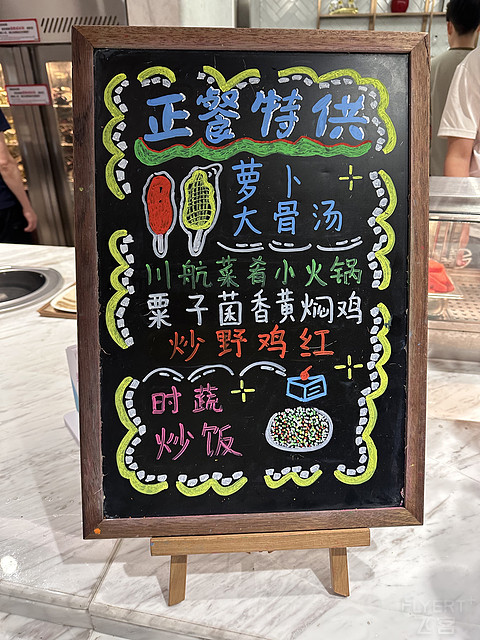 正餐特供
萝卜
大骨汤
川航菜肴小火锅
粟子菌香黄焖鸡
炒野鸡红
时蔬
炒饭
FLYERT
飞客